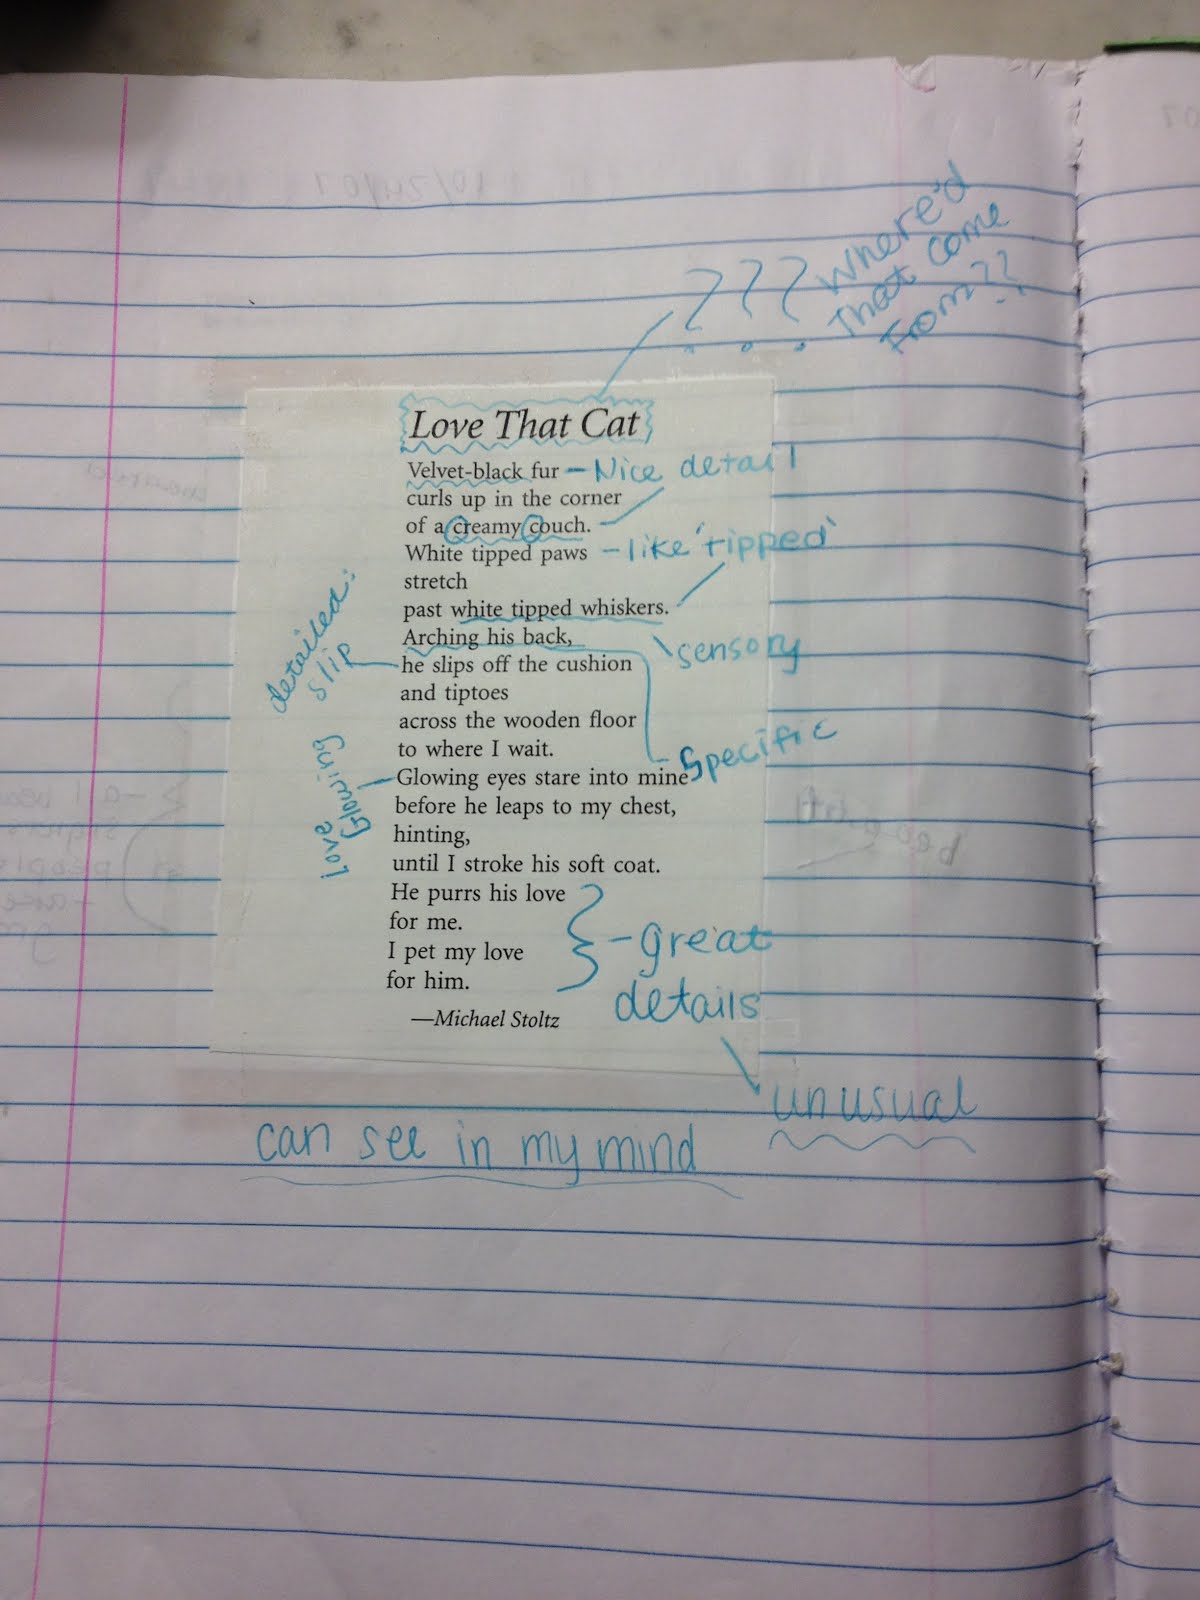 ???
Where'd
that come
from??
Love That Cat
Velvet-black fur – Nice detail
curls up in the corner
of a creamy couch.
White tipped paws – like 'tipped'
stretch
past white tipped whiskers.
Arching his back,
sensory
detailed:
slip
he slips off the cushion
and tiptoes
across the wooden floor
to where I wait.
specific
Love
Glowing
Glowing eyes stare into mine
before he leaps to my chest,
hinting,
until I stroke his soft coat.
He purrs his love
for me.
I pet my love
for him.
– great
details
—Michael Stoltz
unusual
can see in my mind
10/24/07